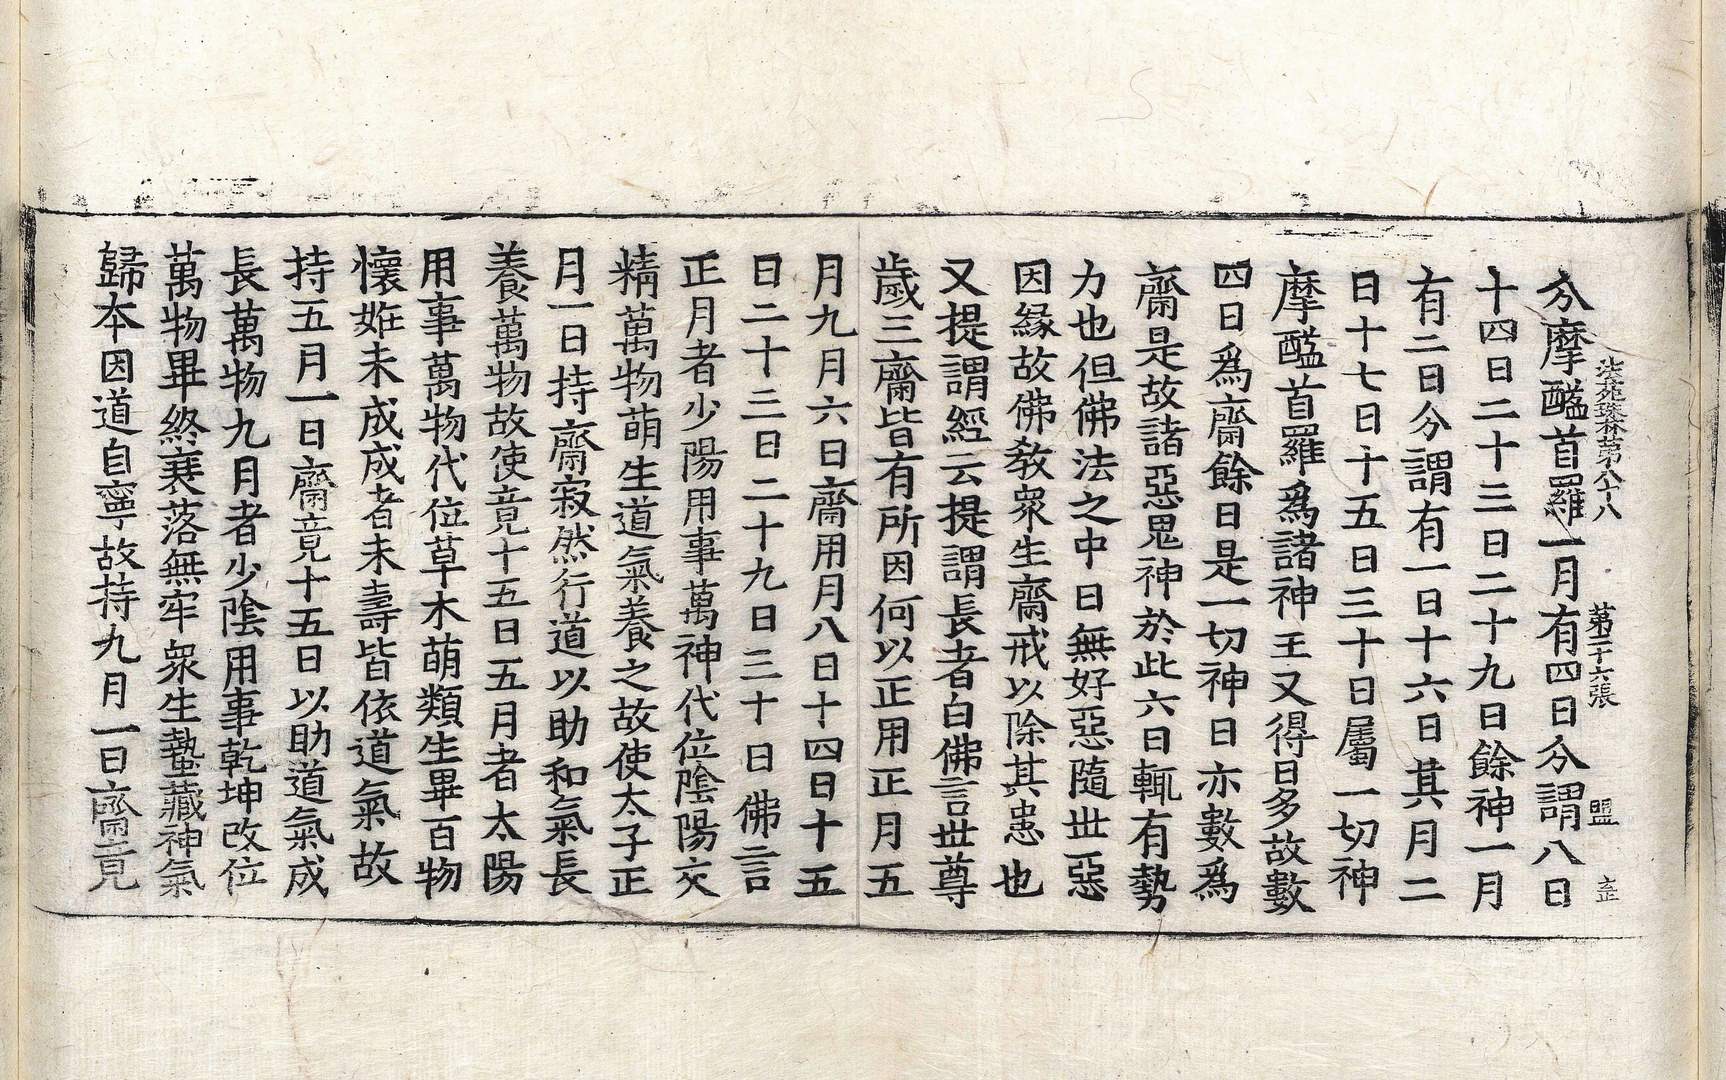 法苑珠林第八十八　第二十六張　盟
分摩醯首羅一月有四日分謂八日
十四日二十三日二十九日餘神一月
有二日分謂有一日十六日其月二
日十七日十五日三十日屬一切神
摩醯首羅爲諸神王又得日多故數
四日爲齋餘日是一切神日亦數爲
齋是故諸惡鬼神於此六日輒有勢
力也但佛法之中日無好惡隨世惡
因緣故佛教衆生齋戒以除其患也
又提謂經云提謂長者白佛言世尊
歲三齋皆有所因何以正用正月五
月九月六日齋用月八日十四日十五
日二十三日二十九日三十日佛言
正月者少陽用事萬神代位陰陽交
精萬物萌生道氣養之故使太子正
月一日持齋寂然行道以助和氣長
養萬物故使竟十五日五月者太陽
用事萬物代位草木萌類生畢百物
懷姙未成成者未壽皆依道氣故
持五月一日齋竟十五日以助道氣成
長萬物九月者少陰用事乾坤改位
萬物畢終衰落無牢衆生蟄藏神氣
歸本因道自寧故持九月一日齋竟